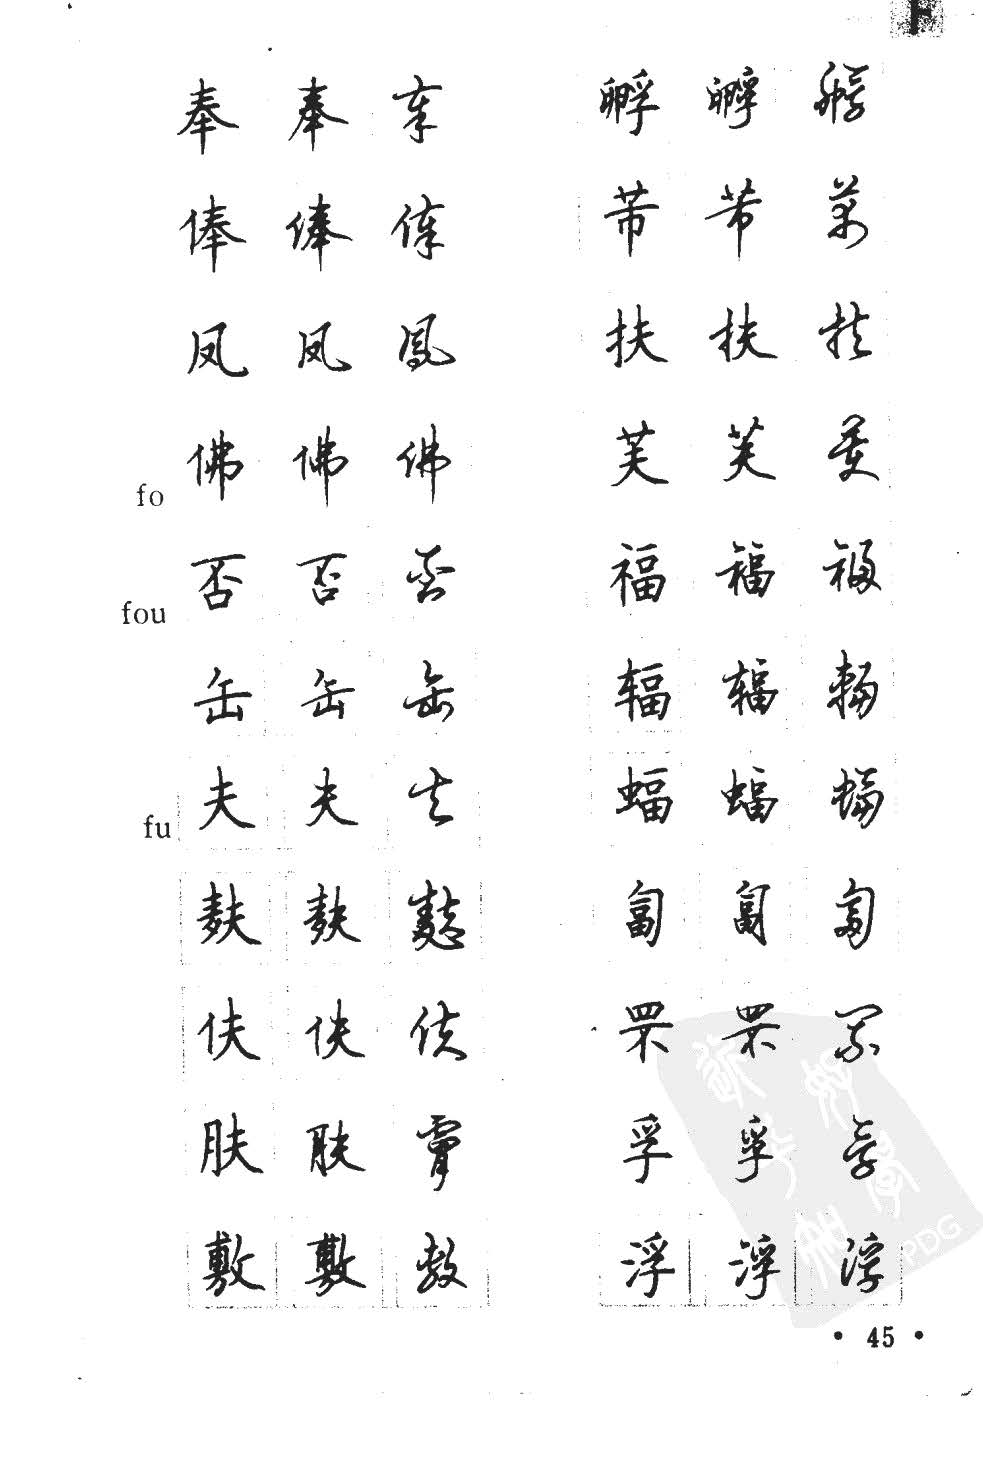 F
奉 奉 奉
俸 俸 俸
凤 凤 鳳
fo 佛 佛 佛
fou 否 否 否
缶 缶 缶
fu 夫 夫 夫
麸 麸 麩
伕 伕 伕
肤 肤 膚
敷 敷 敷
孵 孵 孵
芾 芾 芾
扶 扶 扶
芙 芙 芙
福 福 福
辐 辐 輻
蝠 蝠 蝠
匐 匐 匐
罘 罘 罘
孚 孚 孚
浮 浮 浮
PDG
• 45 •